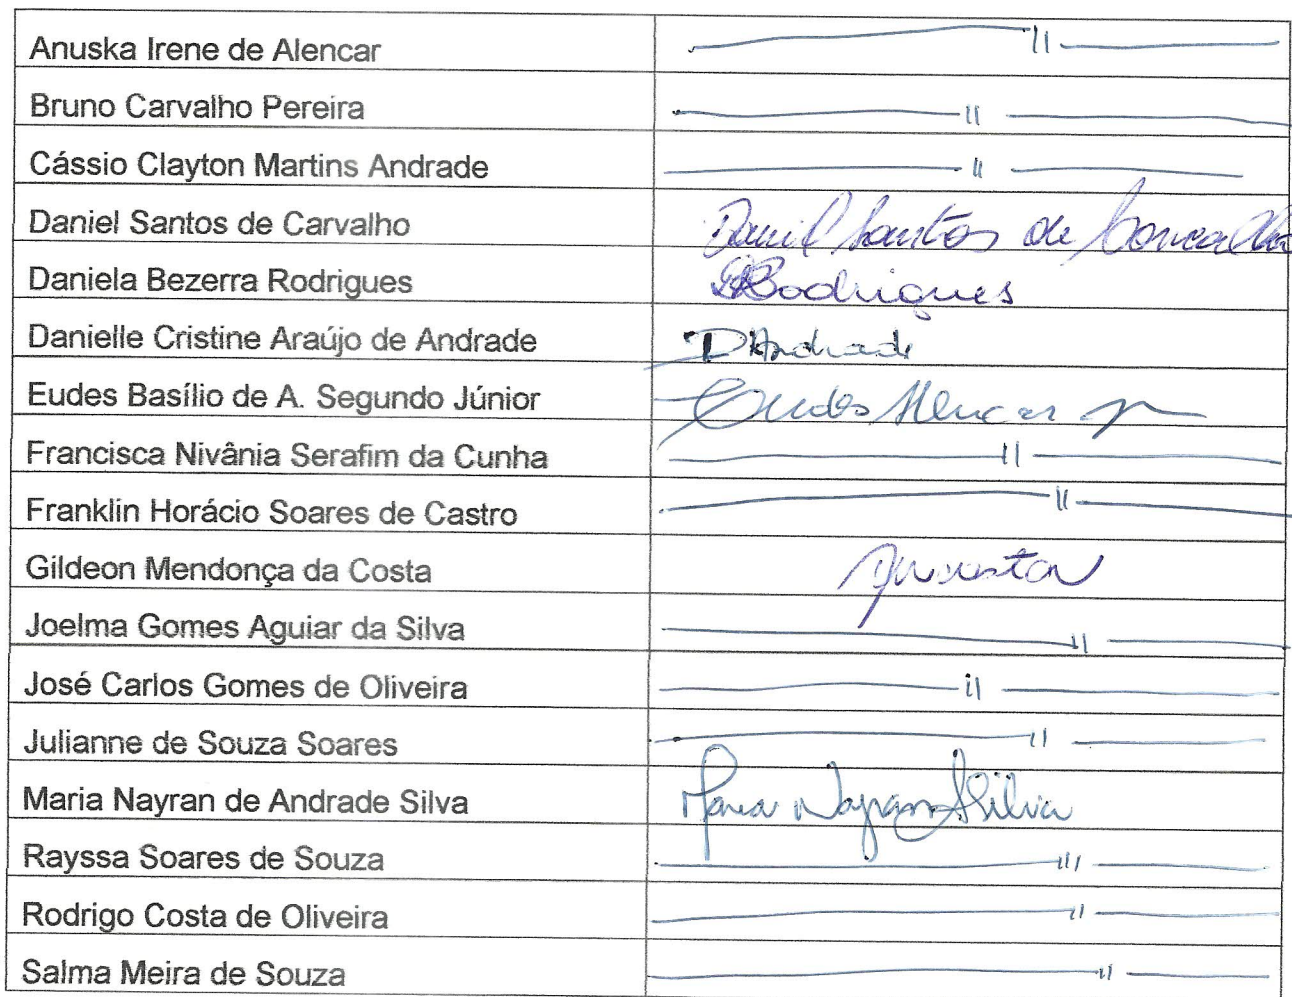 Anuska Irene de Alencar
Bruno Carvalho Pereira
Cássio Clayton Martins Andrade
Daniel Santos de Carvalho Daniel Santos de Carvalho
Daniela Bezerra Rodrigues DBRodrigues
Danielle Cristine Araújo de Andrade DAndrade
Eudes Basílio de A. Segundo Júnior Eudes Alencar Jr
Francisca Nivânia Serafim da Cunha
Franklin Horácio Soares de Castro
Gildeon Mendonça da Costa
Joelma Gomes Aguiar da Silva
José Carlos Gomes de Oliveira
Julianne de Souza Soares
Maria Nayran de Andrade Silva Maria Nayran A Silva
Rayssa Soares de Souza
Rodrigo Costa de Oliveira
Salma Meira de Souza